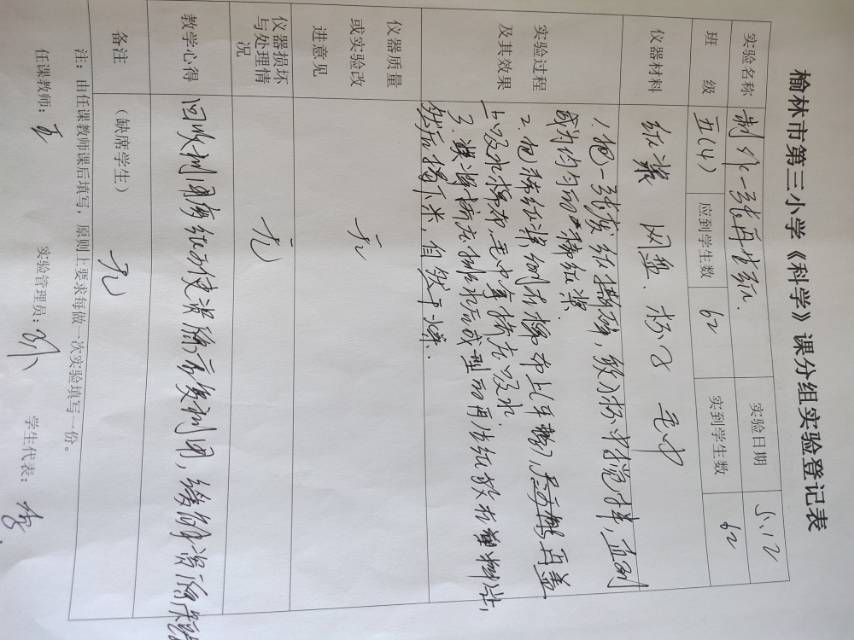 榆林市第三小学《科学》课分组实验登记表
实验名称 制作一张再生纸. 实验日期 5.12
班 级 五(4) 应到学生数 62 实到学生数 62
仪器材料 纸浆 网盘. 杯子 毛巾
实验过程及其效果
1.把一张废纸撕碎，放入杯中搅拌，直到
成为均匀的稀纸浆.
2.把稀纸浆倒在棉布上(平整)，然后再盖
上吸水棉布，毛巾等挤压吸水.
3.将挤压排水后成型的再生纸放在
然后揭下来，自然干燥.
仪器质量或实验改进意见 无
仪器损坏与处理情况 无
教学心得 回收利用废纸可使资源示复利用，缓解资源短
备注 （缺席学生） 无
注：由任课教师课后填写，原则上要求每做一次实验填写一份。
任课教师：王 实验管理员： 学生代表：